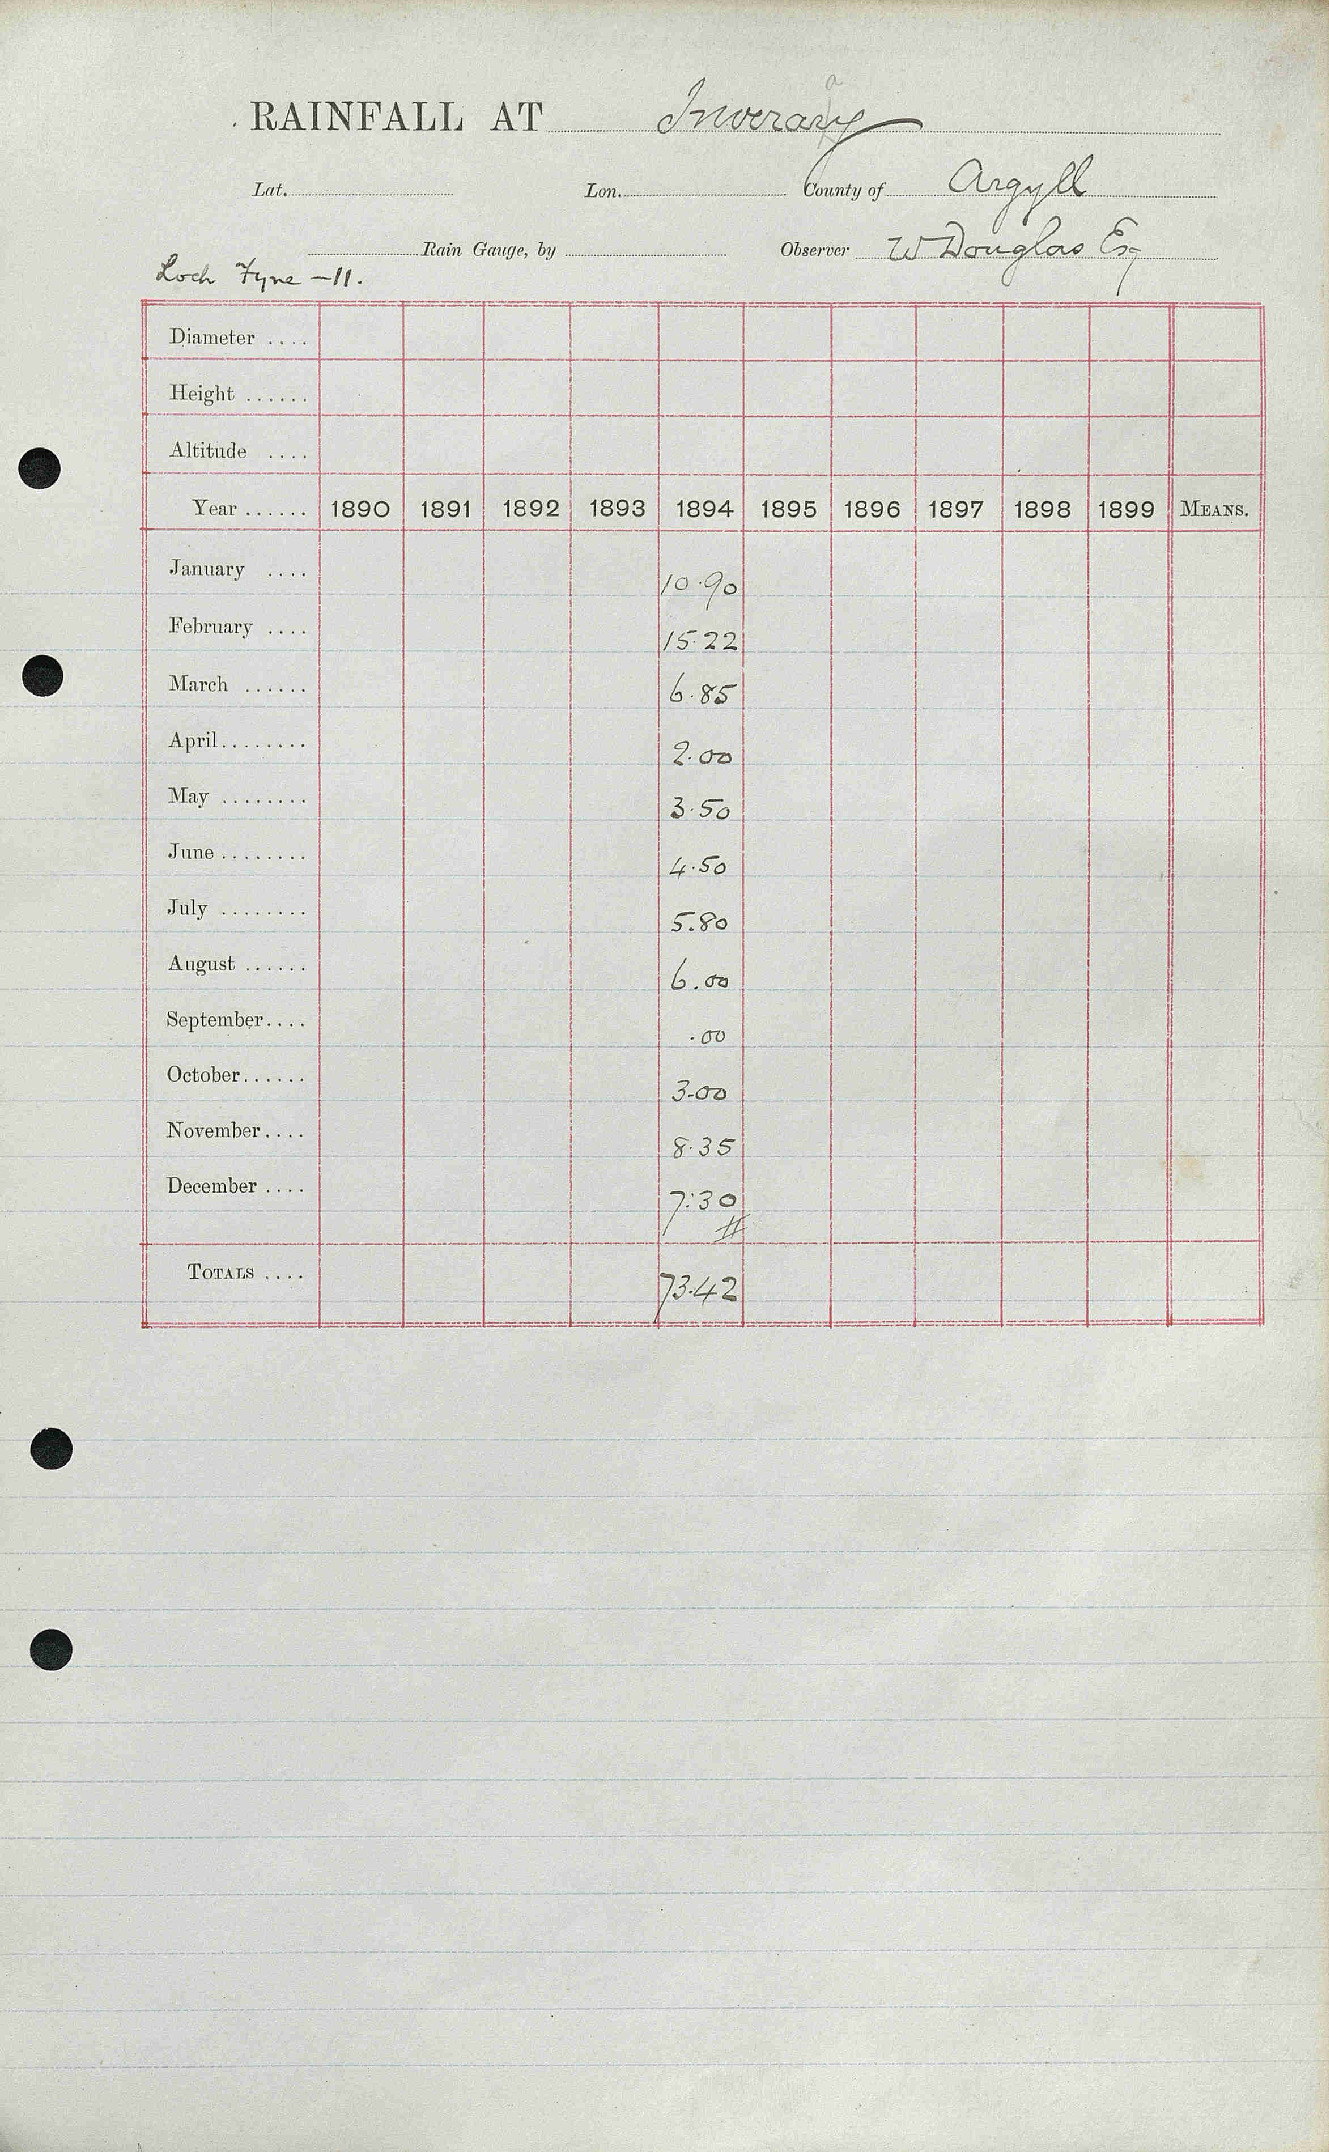 RAINFALL AT Inveraray
Lat. Lon. County of Argyll
Rain Gauge, by Observer W Douglas Esq
Loch Fyne - 11.
Diameter ....
Height ......
Altitude ....
Year ...... 1890 1891 1892 1893 1894 1895 1896 1897 1898 1899 MEANS.
January .... 10.90
February .... 15.22
March ...... 6.85
April ........ 2.00
May ........ 3.50
June ........ 4.50
July ........ 5.80
August ...... 6.00
September .... .00
October ...... 3.00
November .... 8.35
December .... 7.30
TOTALS .... 73.42